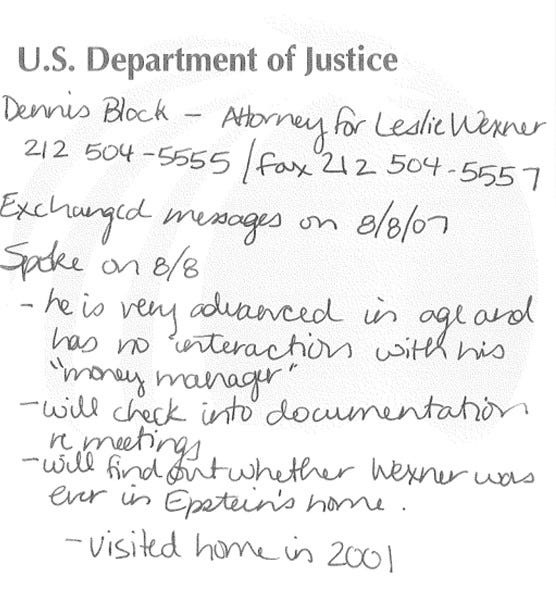 U.S. Department of Justice
Dennis Block - Attorney for Leslie Wexner
212 504-5555 / fax 212 504-5557
Exchanged messages on 8/8/07
Spoke on 8/8
- he is very advanced in age and
has no interaction with his
"money manager"
- will check into documentation
re meetings
- will find out whether Wexner was
ever in Epstein's home.
- visited home in 2001